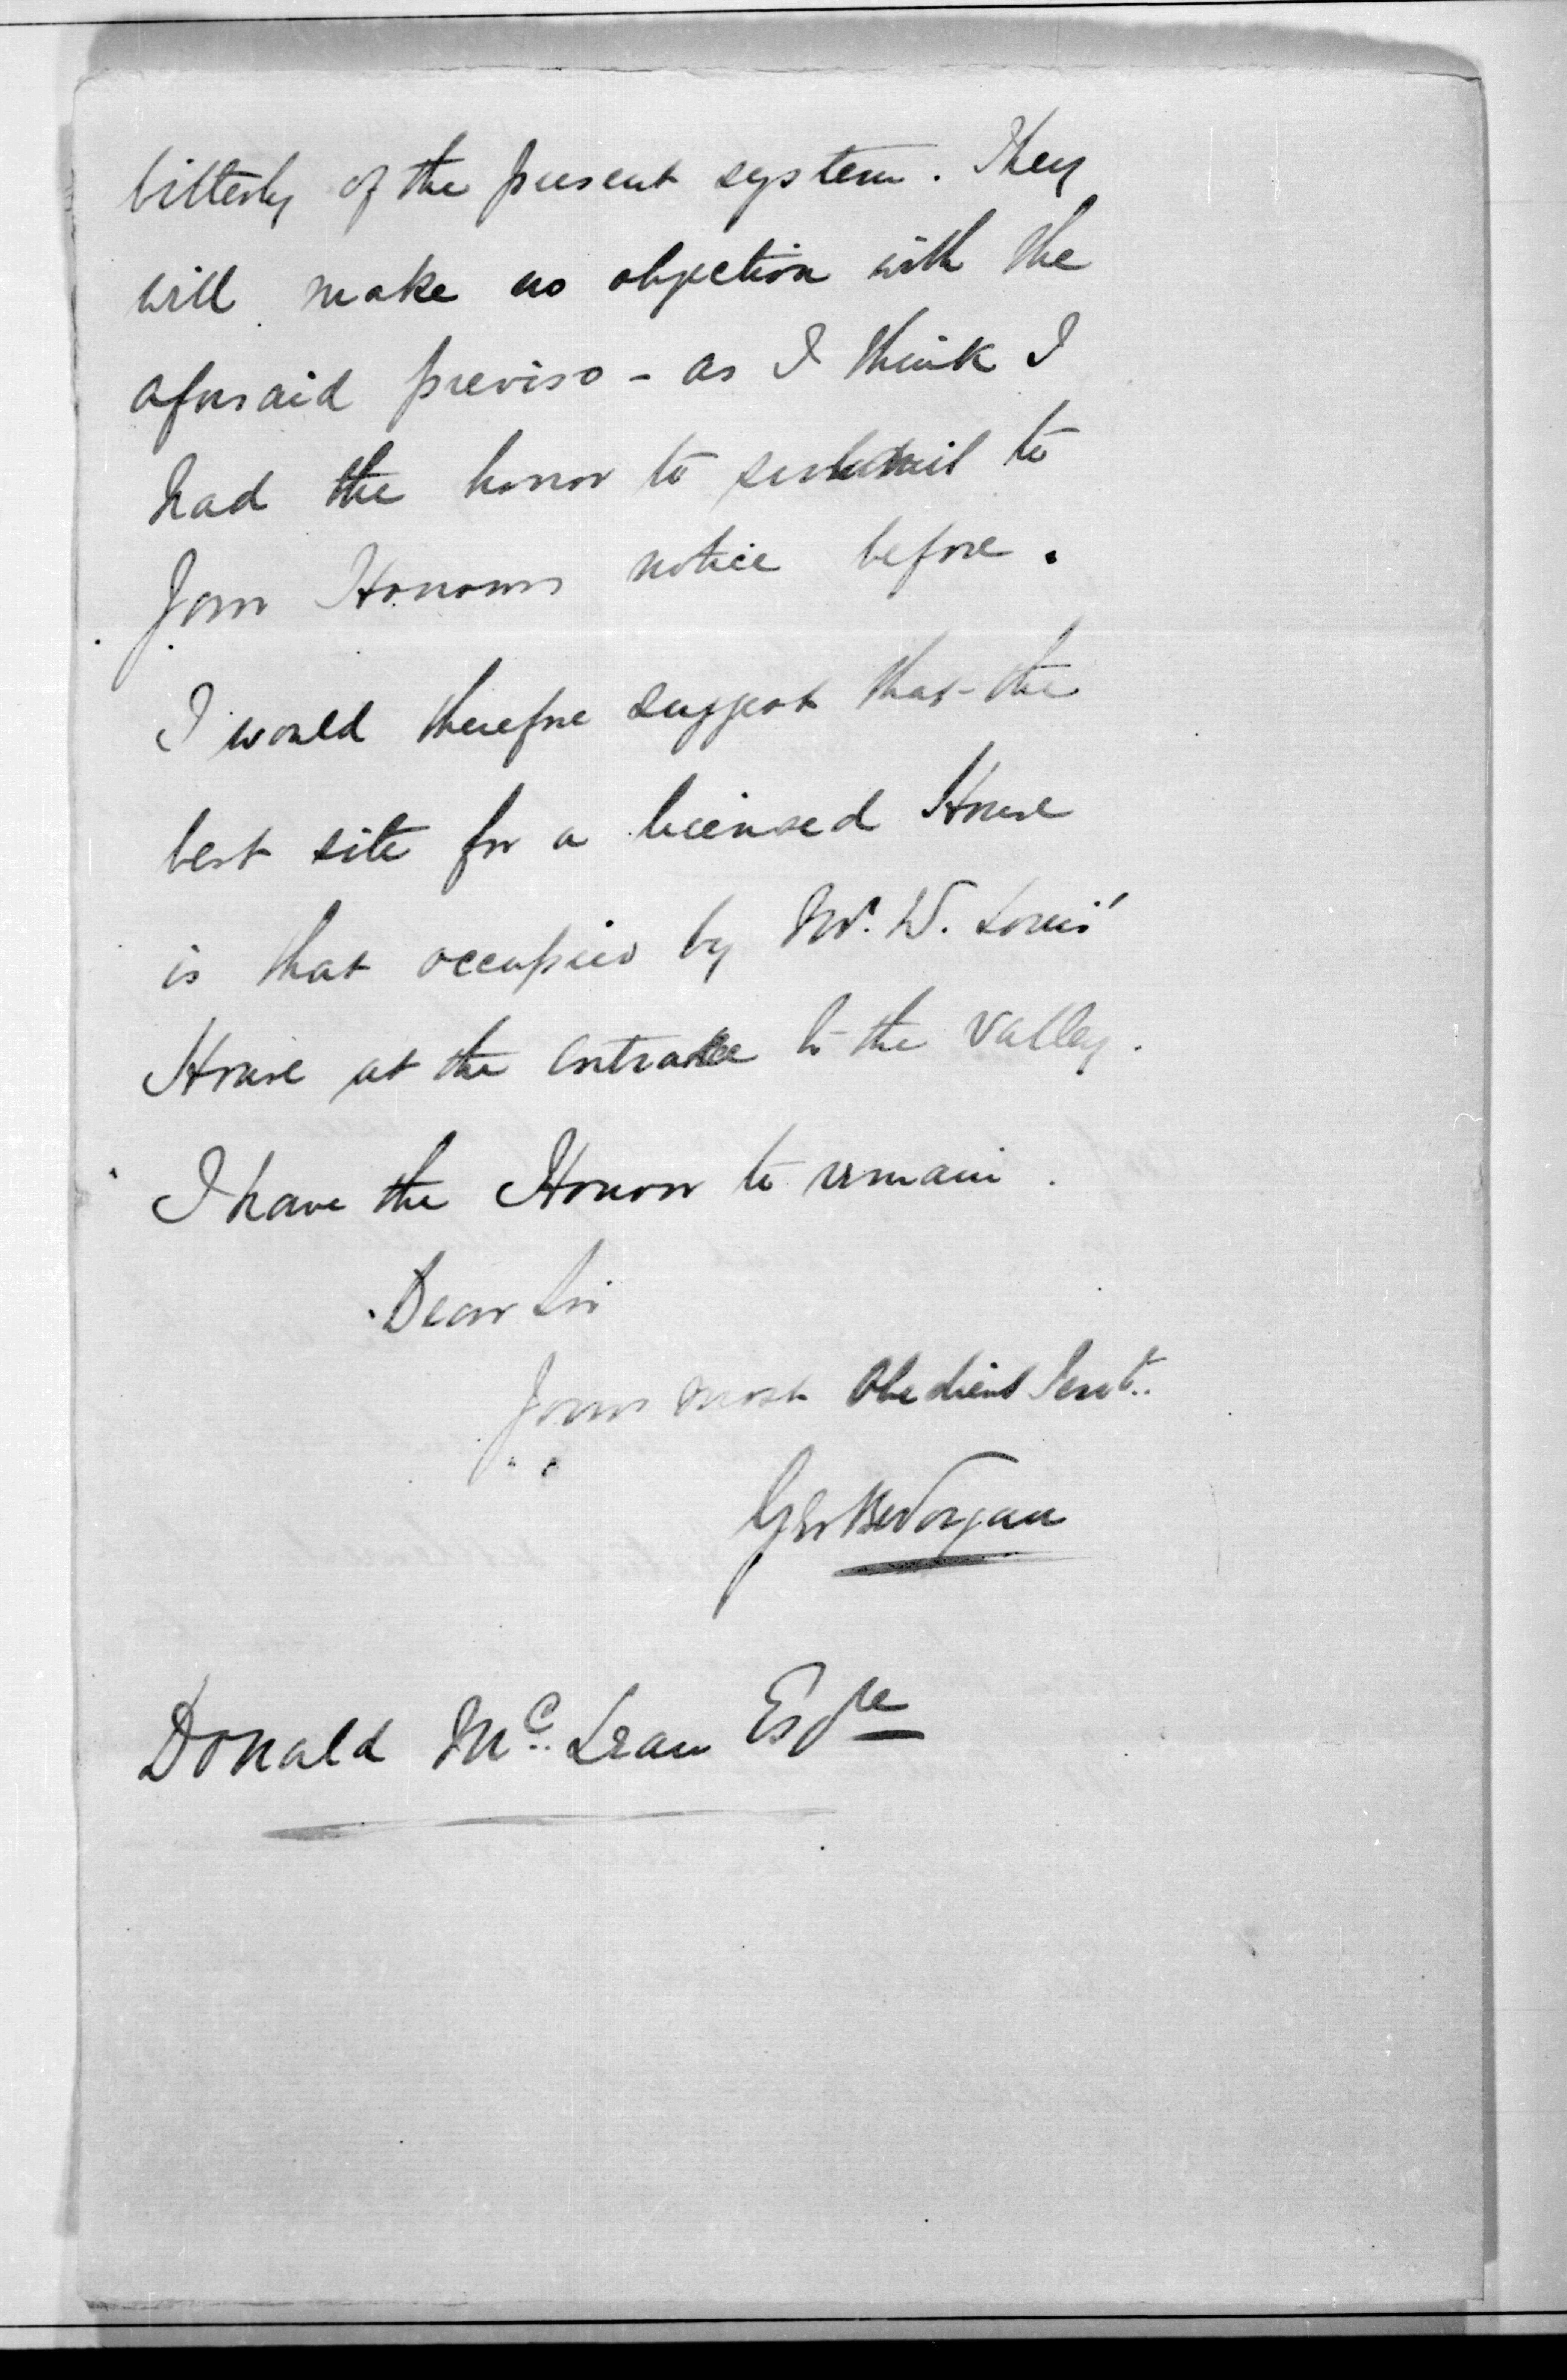 bitterly of the present system. They
will make no objection with the
aforsaid previso - as I think I
had the honor to submit to
Your Honours notice before.
I would therefore suggest that the
best site for a licensed House
is that occupied by Mr. W.
House at the entrance to the valley.
I have the Honor to remain.
Dear Sir
Yours most Obedient Servt.
Donald Mc. Lean Esqre